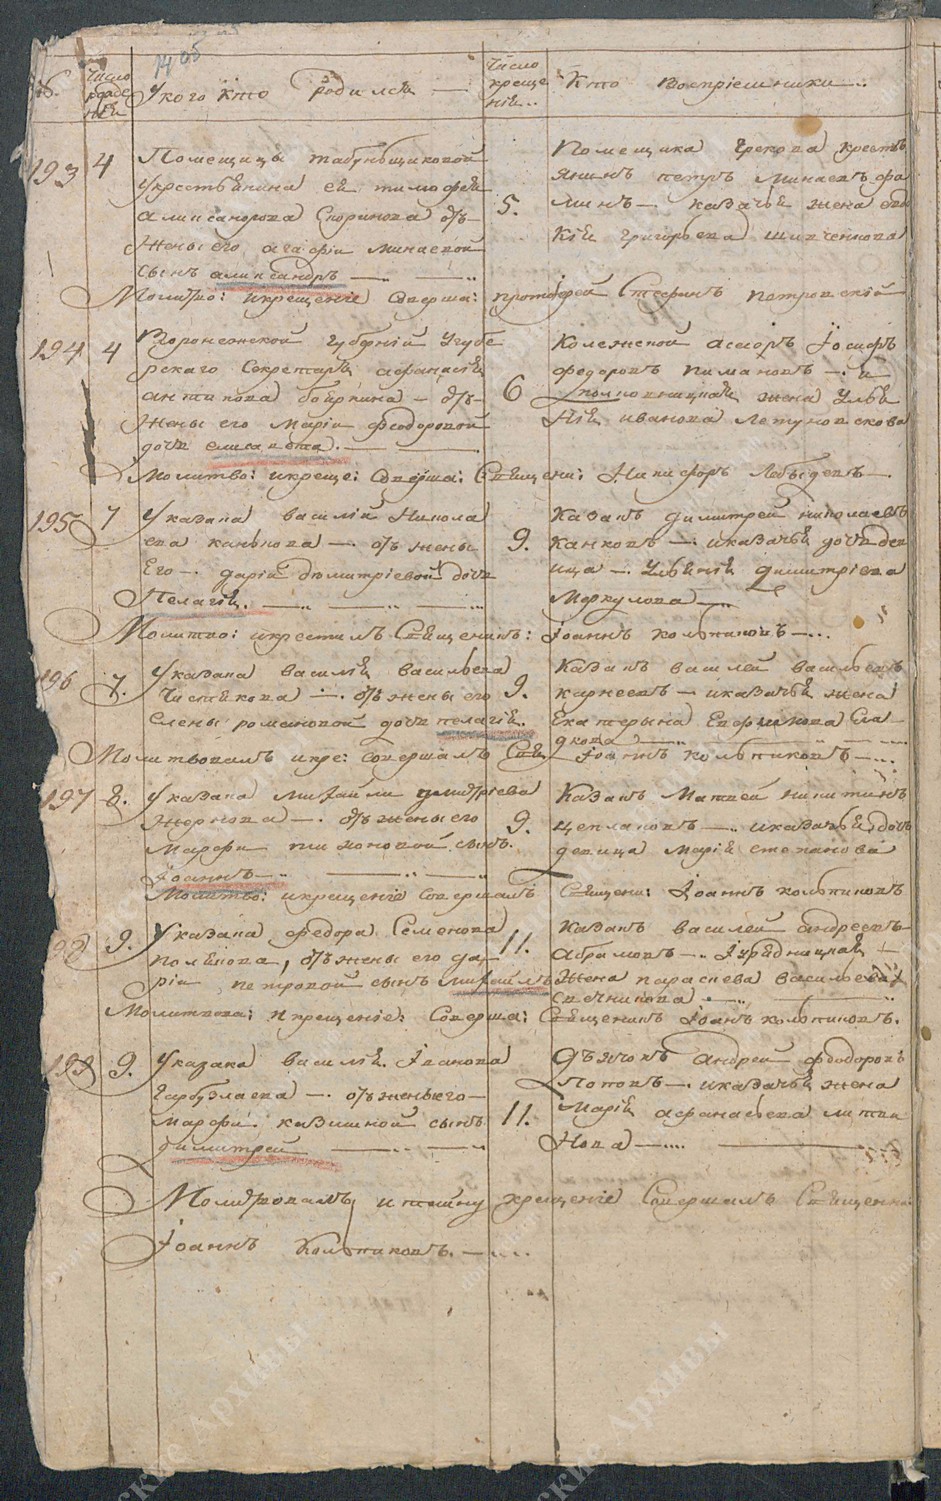 1405
№.
Число рожде нія
У кого кто родился
Число креще нія..
Кто восприемники..
193 4 Помещицы табунъщиковой
у крестьянина ея тимофея
аликсандрова Скорикова отъ
жены его агафіи минаевой
сынъ аликсандръ
5. Помещика Грекова кресть
янинъ петръ минаевъ фо
минъ — казачья жена евдо
кія григорьева шивченкова
Молитво: икрещеніе соверша: протоіерей Стефанъ петровскій
194 4 Воронежской губерніи у губе
рскаго секретаря афанасія
антипова бояркина — отъ
жены его Маріи феодоровой
дочь елисавета.
6 Колежской асесоръ Іосифъ
федоровъ пимановъ — и
полковницкая жена улья
нія иванова Летуновскова
Молитво: икреще: соверша: Священи: Никифоръ Лебедевъ
195 7 У казака василія Никола
ева канькова — отъ жены
Его — даріи дмитріевой дочь
Пелагія.
9. Казакъ димитрей николаевъ
Канковъ — и казачья дочь дев
ица — Ульянія димитріева
Меркулова
Молитво: икрестилъ Священикъ: Іоаннъ колпиковъ
196 7. У казака василія васильева
Чистякова — отъ жены его
Елены романовой дочь пелагія.
9. Казакъ василей васильевъ
карнеевъ — и казачья жена
Екатерына Ефимова Сла
дкова
Молитвовалъ икре: совершалъ Свя: Іоаннъ колпиковъ
197 8. У казака михайлы дмитріева
жернова — отъ жены его
Марфы тихоновой сынъ.
Іоаннъ
9. Казакъ Матвей никитинъ
цепляковъ — и казачья дочь
девица Марія степанова
Молитво: икрещеніе совершалъ Священи: Іоаннъ колпиковъ
198 9. У казака федора Семенова
полякова, отъ жены его да
ріи петровой сынъ михайлъ
11. Казакъ василей андреевъ
абрамовъ — и урядницкая
жена параскева васильева
Свечникова
Молитвова: и крещеніе: соверша: Священикъ Іоанъ колпиковъ.
199 9. У казака василія Іванова
Гарбузлаева — отъ жены его
Марфы савишной сынъ
димитрей
11. Дьячокъ андрей феодоровъ
Поповъ — и казачья жена
Марія афанасьева литви
нова
Молитвовалъ и тайну крещеніе совершалъ Священи
Іоаннъ Колпиковъ.